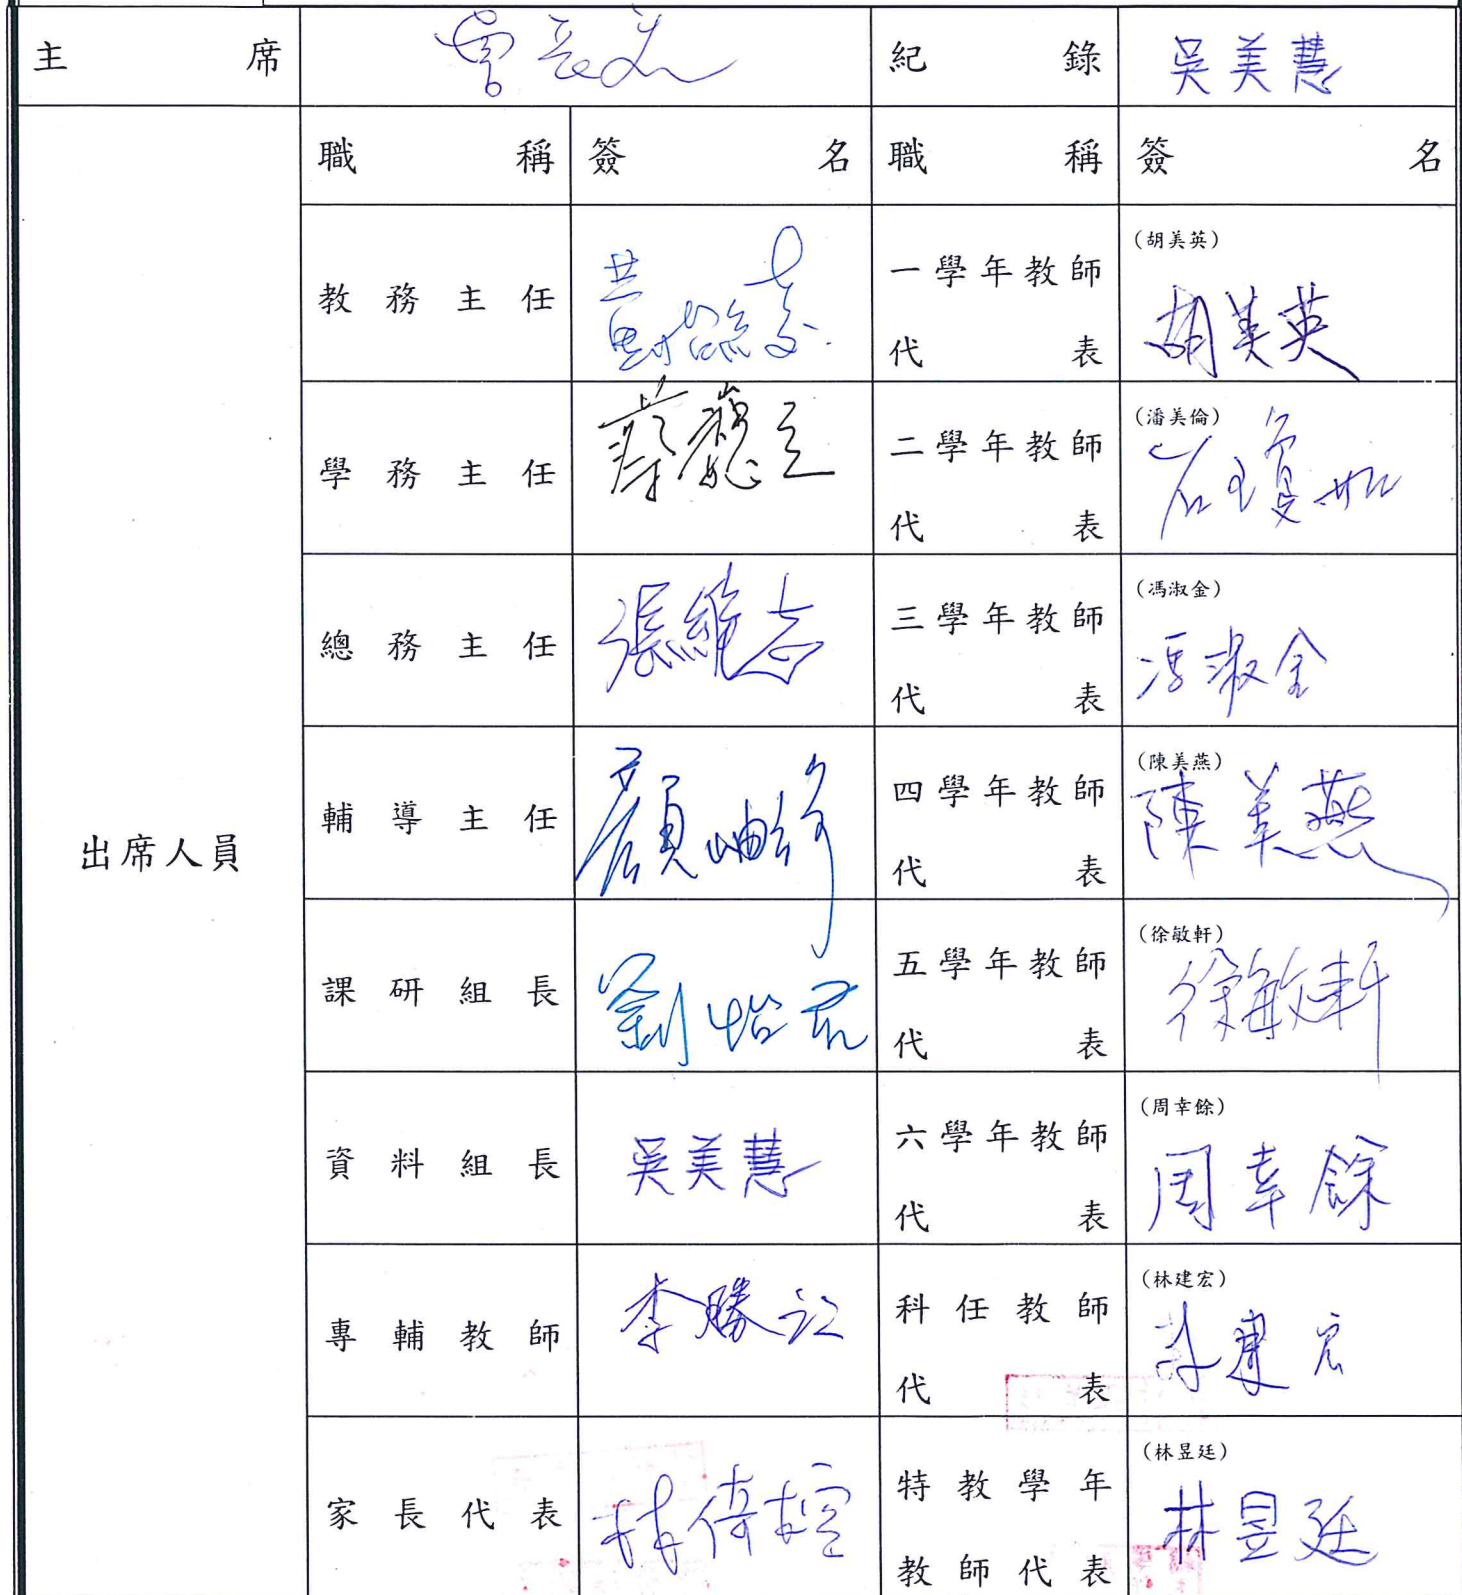 主席 紀錄 吳美慧
職稱 簽名 職稱 簽名
出席人員
教務主任
一學年教師代表
(胡美英)
胡美英
學務主任
二學年教師代表
(潘美倫)
石瓊如
總務主任 張維志
三學年教師代表
(馮淑金)
馮淑金
輔導主任
四學年教師代表
(陳美燕)
陳美燕
課研組長 劉怡君
五學年教師代表
(徐敏軒)
徐敏軒
資料組長 吳美慧
六學年教師代表
(周幸餘)
周幸餘
專輔教師 李勝
科任教師代表
(林建宏)
家長代表
特教學年教師代表
(林昱廷)
林昱廷